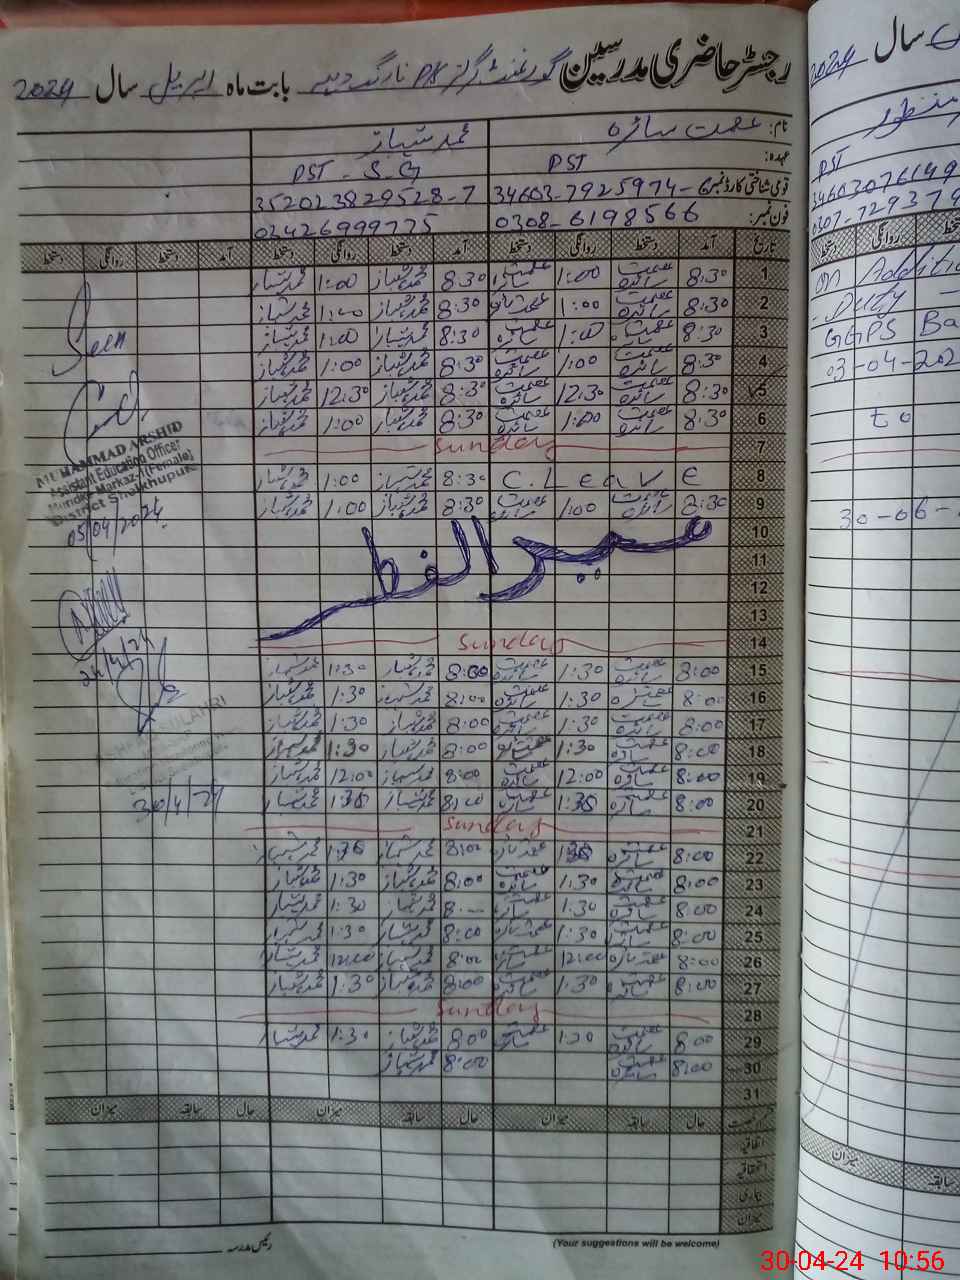 رجسٹر حاضری مدرسین گورنمنٹ گرلز نارنگ دہیے بابت ماہ اپریل سال 2024
نام: عصمت سائرہ محمد شہباز
عہدہ: PST PST - S.G
قومی شناختی کارڈ نمبر: 34603-7925974-6 352023829528-7
فون نمبر: 0308-6198566 03426999775
تاریخ آمد دستخط روانگی دستخط آمد دستخط روانگی دستخط آمد دستخط روانگی دستخط
1 8:30 عصمت سائرہ 1:00 عصمت سائرہ 8:30 محمد شہباز 1:00 محمد شہباز
2 8:30 عصمت سائرہ 1:00 عصمت سائرہ 8:30 محمد شہباز 1:00 محمد شہباز
3 8:30 عصمت سائرہ 1:00 عصمت سائرہ 8:30 محمد شہباز 1:00 محمد شہباز
4 8:30 عصمت سائرہ 1:00 عصمت سائرہ 8:30 محمد شہباز 1:00 محمد شہباز
5 8:30 عصمت سائرہ 12:30 عصمت سائرہ 8:30 محمد شہباز 12:30 محمد شہباز
6 8:30 عصمت سائرہ 1:00 عصمت سائرہ 8:30 محمد شہباز 1:00 محمد شہباز
7 Sunday
8 C. Leave 8:30 محمد شہباز 1:00 محمد شہباز
9 8:30 عصمت سائرہ 1:00 عصمت سائرہ 8:30 محمد شہباز 1:00 محمد شہباز
10
11 عید الفطر
12
13
14 Sunday
15 8:00 عصمت سائرہ 1:30 عصمت سائرہ 8:00 محمد شہباز 1:30 محمد شہباز
16 8:00 عصمت سائرہ 1:30 عصمت سائرہ 8:00 محمد شہباز 1:30 محمد شہباز
17 8:00 عصمت سائرہ 1:30 عصمت سائرہ 8:00 محمد شہباز 1:30 محمد شہباز
18 8:00 عصمت سائرہ 1:30 عصمت سائرہ 8:00 محمد شہباز 1:30 محمد شہباز
19 8:00 عصمت سائرہ 12:00 عصمت سائرہ 8:00 محمد شہباز 12:00 محمد شہباز
20 8:00 عصمت سائرہ 1:30 عصمت سائرہ 8:00 محمد شہباز 1:30 محمد شہباز
21 Sunday
22 8:00 عصمت سائرہ 1:30 عصمت سائرہ 8:00 محمد شہباز 1:30 محمد شہباز
23 8:00 عصمت سائرہ 1:30 عصمت سائرہ 8:00 محمد شہباز 1:30 محمد شہباز
24 8:00 عصمت سائرہ 1:30 عصمت سائرہ 8:- محمد شہباز 1:30 محمد شہباز
25 8:00 عصمت سائرہ 1:30 عصمت سائرہ 8:00 محمد شہباز 1:30 محمد شہباز
26 8:00 عصمت سائرہ 12:00 عصمت سائرہ 8:00 محمد شہباز 12:00 محمد شہباز
27 8:00 عصمت سائرہ 1:30 عصمت سائرہ 8:00 محمد شہباز 1:30 محمد شہباز
28 Sunday
29 8:00 عصمت سائرہ 1:30 عصمت سائرہ 8:00 محمد شہباز 1:30 محمد شہباز
30 8:00 عصمت سائرہ 8:00 محمد شہباز
31
Seen
MUHAMMAD ARSHID
Assistant Education Officer
Markaz-1 (Female)
District Sheikhupura
05/04/2024
24/4/24
30/4/24
رخصت حال سابقہ میزان حال سابقہ میزان حال سابقہ میزان
اتفاقیہ
استحقاقیہ
بیماری
میزان
رئیس مدرسہ
(Your suggestions will be welcome)
سال 2024
منظور
PST
34603076149
0307-729379
دستخط روانگی دستخط
on Additio
Duty
GGPS Ba
03-04-202
to
30-06-
میزان سابقہ
30-04-24 10:56